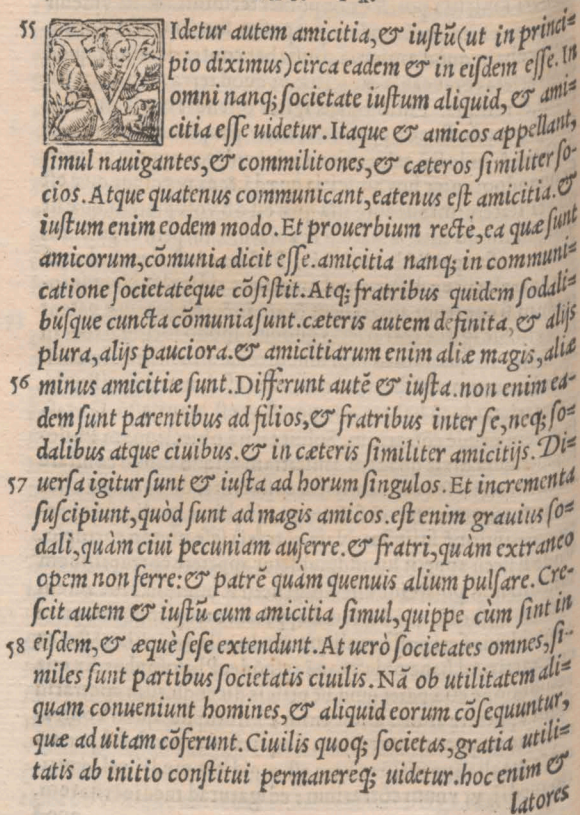 55 VIdetur autem amicitia,& iustũ(ut in princi=
pio diximus)circa eadem & in eisdem esse. In
omni nanq; societate iustum aliquid, & ami=
citia esse uidetur. Itaque & amicos appellant,
simul nauigantes,& commilitones,& cæteros similiter so-
cios. Atque quatenus communicant,eatenus est amicitia. &
iustum enim eodem modo. Et prouerbium rectè,ea quæ sunt
amicorum,cõmunia dicit esse. amicitia nanq; in communi=
catione societatéque cõsistit. Atq; fratribus quidem sodali=
búsque cuncta cõmunia sunt. cæteris autem definita,& alijs
plura,alijs pauciora. & amicitiarum enim aliæ magis,aliæ
56 minus amicitiæ sunt. Differunt autẽ & iusta. non enim ea-
dem sunt parentibus ad filios,& fratribus inter se,neq; so=
dalibus atque ciuibus. & in cæteris similiter amicitijs. Di=
57 uersa igitur sunt & iusta ad horum singulos. Et incrementa
suscipiunt,quòd sunt ad magis amicos. est enim grauius so=
dali,quàm ciui pecuniam auferre. & fratri,quàm extraneo
opem non ferre: & patrẽ quàm quenuis alium pulsare. Cre-
scit autem & iustũ cum amicitia simul,quippe cùm sint in
58 eisdem,& æquè sese extendunt. At uerò societates omnes,si-
miles sunt partibus societatis ciuilis. Nã ob utilitatem ali=
quam conueniunt homines,& aliquid eorum cõsequuntur,
quæ ad uitam cõferunt. Ciuilis quoq; societas,gratia utili=
tatis ab initio constitui permanereq; uidetur. hoc enim &
latores